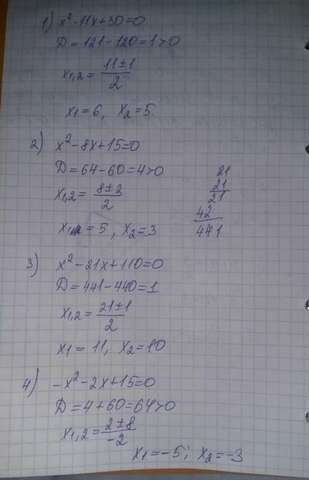 1) x²-11x+30=0
D=121-120=1>0
x1,2=(11±1)/2
x1=6, x2=5.
2) x²-8x+15=0
D=64-60=4>0
x1,2=(8±2)/2
x1=5, x2=3
21
21
21
42
441
3) x²-21x+110=0
D=441-440=1
x1,2=(21±1)/2
x1=11, x2=10
4) -x²-2x+15=0
D=4+60=64>0
x1,2=(2±8)/-2
x1=-5; x2=-3